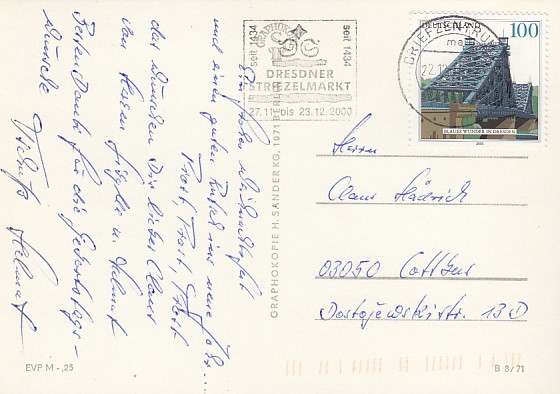 Ein frohes Weihnachtsfest
und einen guten Rutsch ins neue Jahr...
Prost, Prost, Prost
das wünschen Dir lieber Claus
von Herzen u. Helmut
Besten Dank für die Geburtstags-
wünsche
Tschüß Helmut
seit 1434
GRAPHOKOPIE
seit 1434
DRESDNER
STRIEZELMARKT
27.11. bis 23.12.2000
BRIEFZENTRUM
22.12
DEUTSCHLAND
100
BLAUES WUNDER IN DRESDEN
2000
GRAPHOKOPIE H. SANDER KG, 1071 BERLIN
Herrn
Claus Hädrich
03050 Cottbus
Dostojewskistr. 13D
EVP M -,25
B 8/71